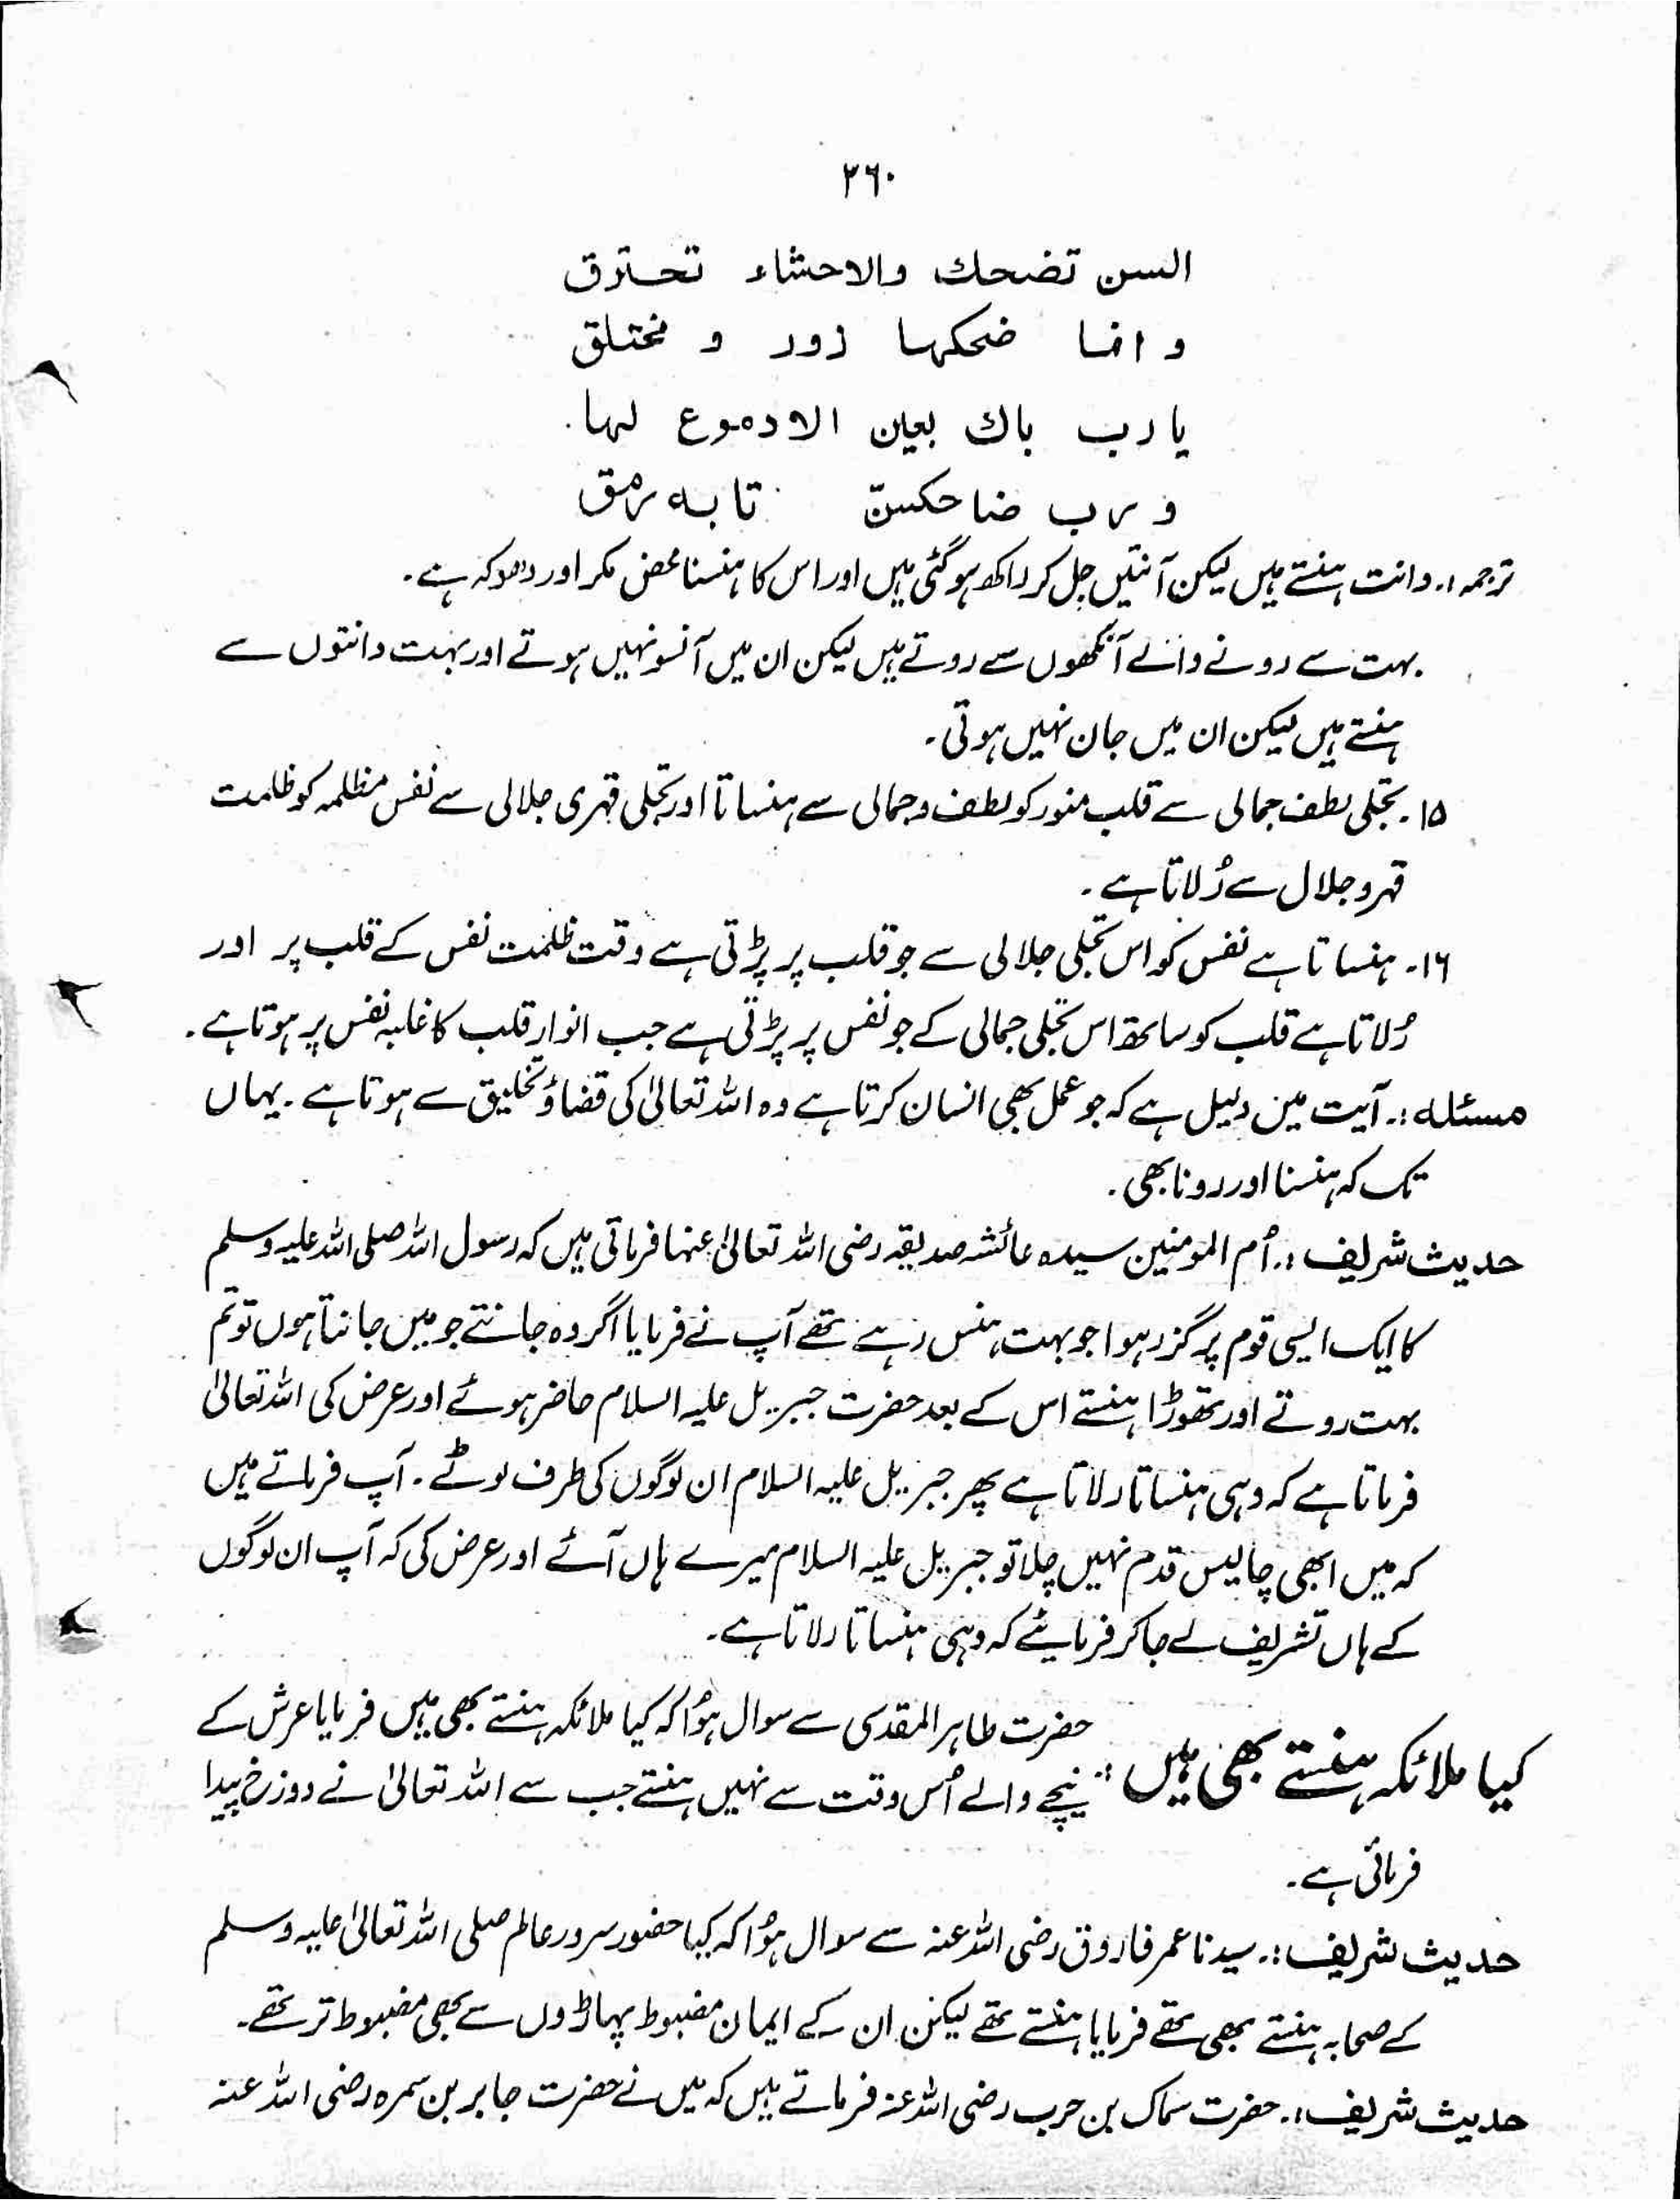 ۲۶۰
السن تضحك والاحشاء تحترق
و انما ضحكها زور و مختلق
يا رب باك بعين الا دموع لها
و رب ضاحك سنّ تا به رمق
ترجمہ :۔ دانت ہنستے ہیں لیکن آنتیں جل کر راکھ ہو گئی ہیں اور اس کا ہنسنا محض مکر اور دھوکہ ہے۔
بہت سے رونے والے آنکھوں سے روتے ہیں لیکن ان میں آنسو نہیں ہوتے اور بہت دانتوں سے
ہنستے ہیں لیکن ان میں جان نہیں ہوتی۔
۱۵۔ تجلی لطف جمالی سے قلب منور کو لطف و جمالی سے ہنساتا اور تجلی قہری جلالی سے نفس مظلمہ کو ظلمت
قہر و جلال سے رُلاتا ہے۔
۱۶۔ ہنساتا ہے نفس کو اس تجلی جلالی سے جو قلب پر پڑتی ہے وقت ظلمت نفس کے قلب پر اور
رُلاتا ہے قلب کو ساتھ اس تجلی جمالی کے جو نفس پر پڑتی ہے جب انوار قلب کا غلبہ نفس پر ہوتا ہے۔
مسئلہ :۔ آیت میں دلیل ہے کہ جو عمل بھی انسان کرتا ہے وہ اللہ تعالیٰ کی قضا و تخلیق سے ہوتا ہے۔ یہاں
تک کہ ہنسنا اور رونا بھی۔
حدیث شریف :۔ اُم المومنین سیدہ عائشہ صدیقہ رضی اللہ تعالیٰ عنہا فرماتی ہیں کہ رسول اللہ صلی اللہ علیہ وسلم
کا ایک ایسی قوم پر گزر ہوا جو بہت ہنس رہے تھے آپ نے فرمایا اگر وہ جانتے جو میں جانتا ہوں تو تم
بہت روتے اور تھوڑا ہنستے اس کے بعد حضرت جبریل علیہ السلام حاضر ہوئے اور عرض کی اللہ تعالیٰ
فرماتا ہے کہ وہی ہنساتا رلاتا ہے پھر جبریل علیہ السلام ان لوگوں کی طرف لوٹے۔ آپ فرماتے ہیں
کہ میں ابھی چالیس قدم نہیں چلا تو جبریل علیہ السلام میرے ہاں آئے اور عرض کی کہ آپ ان لوگوں
کے ہاں تشریف لے جا کر فرمایئے کہ وہی ہنساتا رلاتا ہے۔
کیا ملائکہ ہنستے بھی ہیں :
حضرت طاہر المقدسی سے سوال ہؤا کہ کیا ملائکہ ہنستے بھی ہیں فرمایا عرش کے
نیچے والے اُس وقت سے نہیں ہنستے جب سے اللہ تعالیٰ نے دوزخ پیدا
فرمائی ہے۔
حدیث شریف :۔ سیدنا عمر فاروق رضی اللہ عنہ سے سوال ہؤا کہ کیا حضور سرور عالم صلی اللہ تعالیٰ علیہ وسلم
کے صحابہ ہنستے بھی تھے فرمایا ہنستے تھے لیکن ان کے ایمان مضبوط پہاڑوں سے بھی مضبوط تر تھے۔
حدیث شریف :۔ حضرت سماک بن حرب رضی اللہ عنہ فرماتے ہیں کہ میں نے حضرت جابر بن سمرہ رضی اللہ عنہ